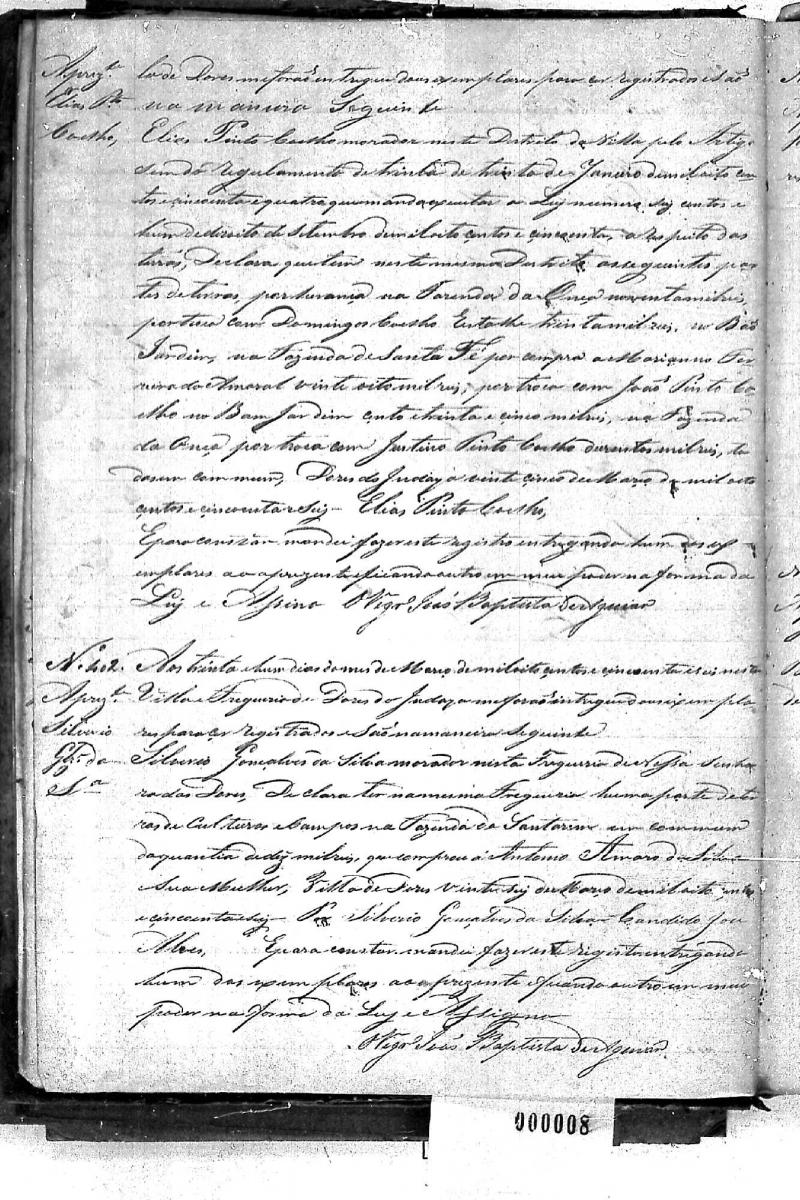 Aprezte
Elias Pto
Coelho,
lo de Dores me forão intregue dous exemplares para ser registrados e são
na maneira seguinte
Elias Pinto Coelho morador neste Distrito da Villa pelo Artigo
sem do regulamento de trinta de Janeiro de mil oito cen-
tos e cincoenta e quatro que manda executar a Lei numero seis centos e
hum de dizoito de Setembro de mil oito centos e cincoenta, a respeito das
terras, Declara que tem neste mesmo Distrito as seguintes par-
tes de terras, por herança na Fazenda da Onça noventa mil reis,
por troca com Domingos Coelho trinta mil reis, no Bom
Jardim, na Fazenda de Santa Fé por compra a Marianno Fer-
reira do Amaral vinte oito mil reis, por troca com João Pinto Co-
elho no Bom Jardim cento e trinta e cinco mil reis, na Fazenda
da Onça por troca com Pinto Coelho duzentos mil reis, to
das em commum, Dores do Judaya vinte cinco de Março de mil oito
centos e cincoenta e seis - Elias Pinto Coelho,
E para constar mandei fazer este registro intregando hum dos ex-
emplares ao aprezte e ficando outro em meu poder na forma da
Lei e Assino O Vigro João Baptista de Aguiar
No 402.
Aprezte
Silverio
Glz da
Sa
Aos trinta e hum dias do mes de Março de mil oito centos e cincoenta e seis nesta
Villa e Freguezia de Dores do Judaya me forão intregue dous exempla-
res para ser registrados e são na maneira seguinte
Silverio Gonçalves da Silva morador nesta Freguezia de Nossa Senho-
ra das Dores, Declara ter na mesma Freguezia huma parte de ter-
ras de Culturas e Campos na Fazenda do Santarem em commum
da quantia de dez mil reis, que comprou a Antonio Amaro da Silva
e sua Mulher, Villa de Dores vinte seis de Março de mil oito centos
e cincoenta e seis - Por Silverio Gonçalves da Silva Candido José
Alves, E para constar mandei fazer este registro intregando
hum dos exemplares ao aprezente e ficando outro em meu
poder na forma da Lei e Assigno
O Vigro João Baptista de Aguiar.
000008